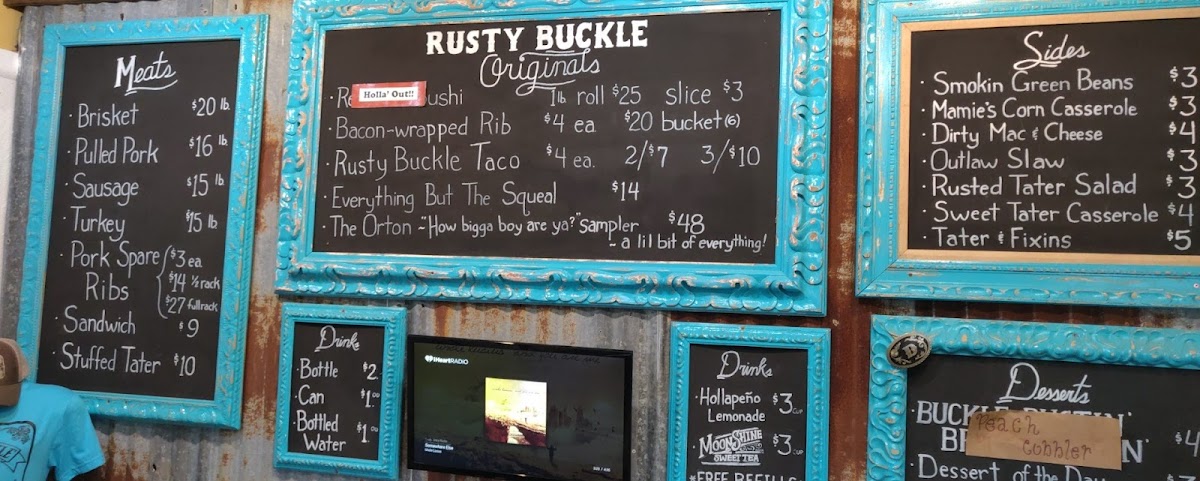 Meats
· Brisket $20 lb.
· Pulled Pork $16 lb.
· Sausage $15 lb.
· Turkey $15 lb.
· Pork Spare Ribs $3 ea.
$14 ½ rack
$27 full rack
· Sandwich $9
· Stuffed Tater $10
RUSTY BUCKLE
Originals
Holla' Out!! ushi 1 lb roll $25 slice $3
· Bacon-wrapped Rib $4 ea. $20 bucket (6)
· Rusty Buckle Taco $4 ea. 2/$7 3/$10
· Everything But The Squeal $14
· The Orton ~"How bigga boy are ya?" Sampler $48
~ a lil bit of everything!
Sides
· Smokin Green Beans $3
· Mamie's Corn Casserole $3
· Dirty Mac & Cheese $4
· Outlaw Slaw $3
· Rusted Tater Salad $3
· Sweet Tater Casserole $4
· Tater & Fixins $5
Drinks
· Bottle $2.
· Can $1.00
· Bottled Water $1.00
iHeartRADIO
Drinks
· Hollapeño Lemonade $3 cup
· MOONSHINE SWEET TEA $3 cup
*FREE REFILLS
Desserts
· BUCKLE
Peach
Cobbler
$4
· Dessert of the Day